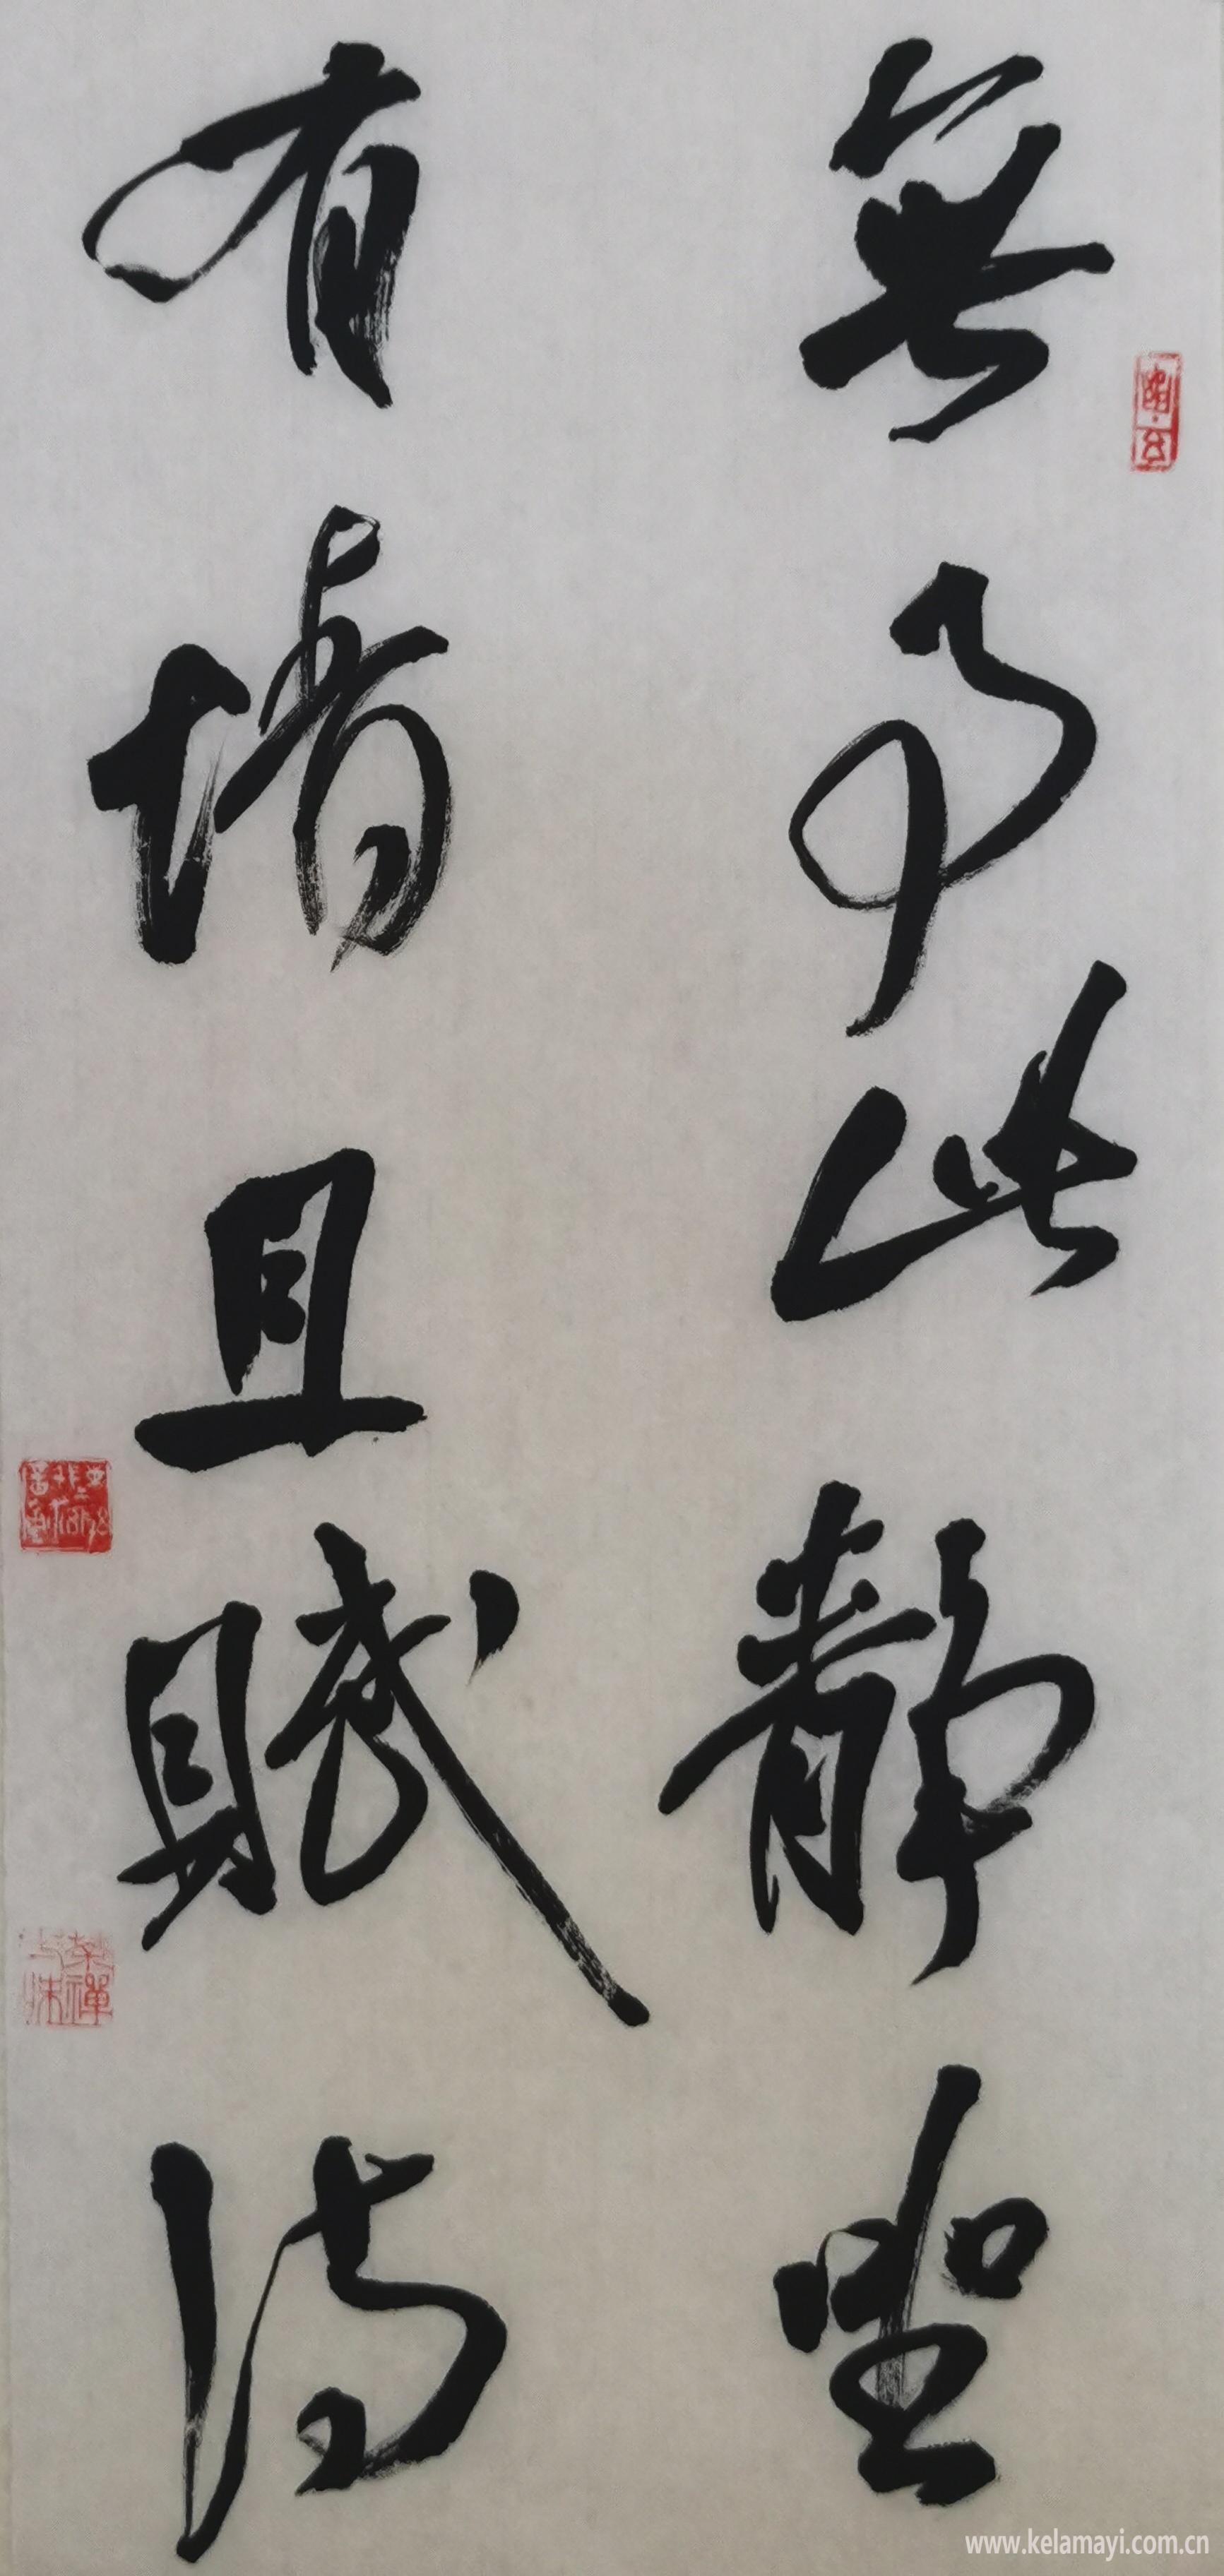 無事此靜坐
有情且賦詩
www.kelamayi.com.cn